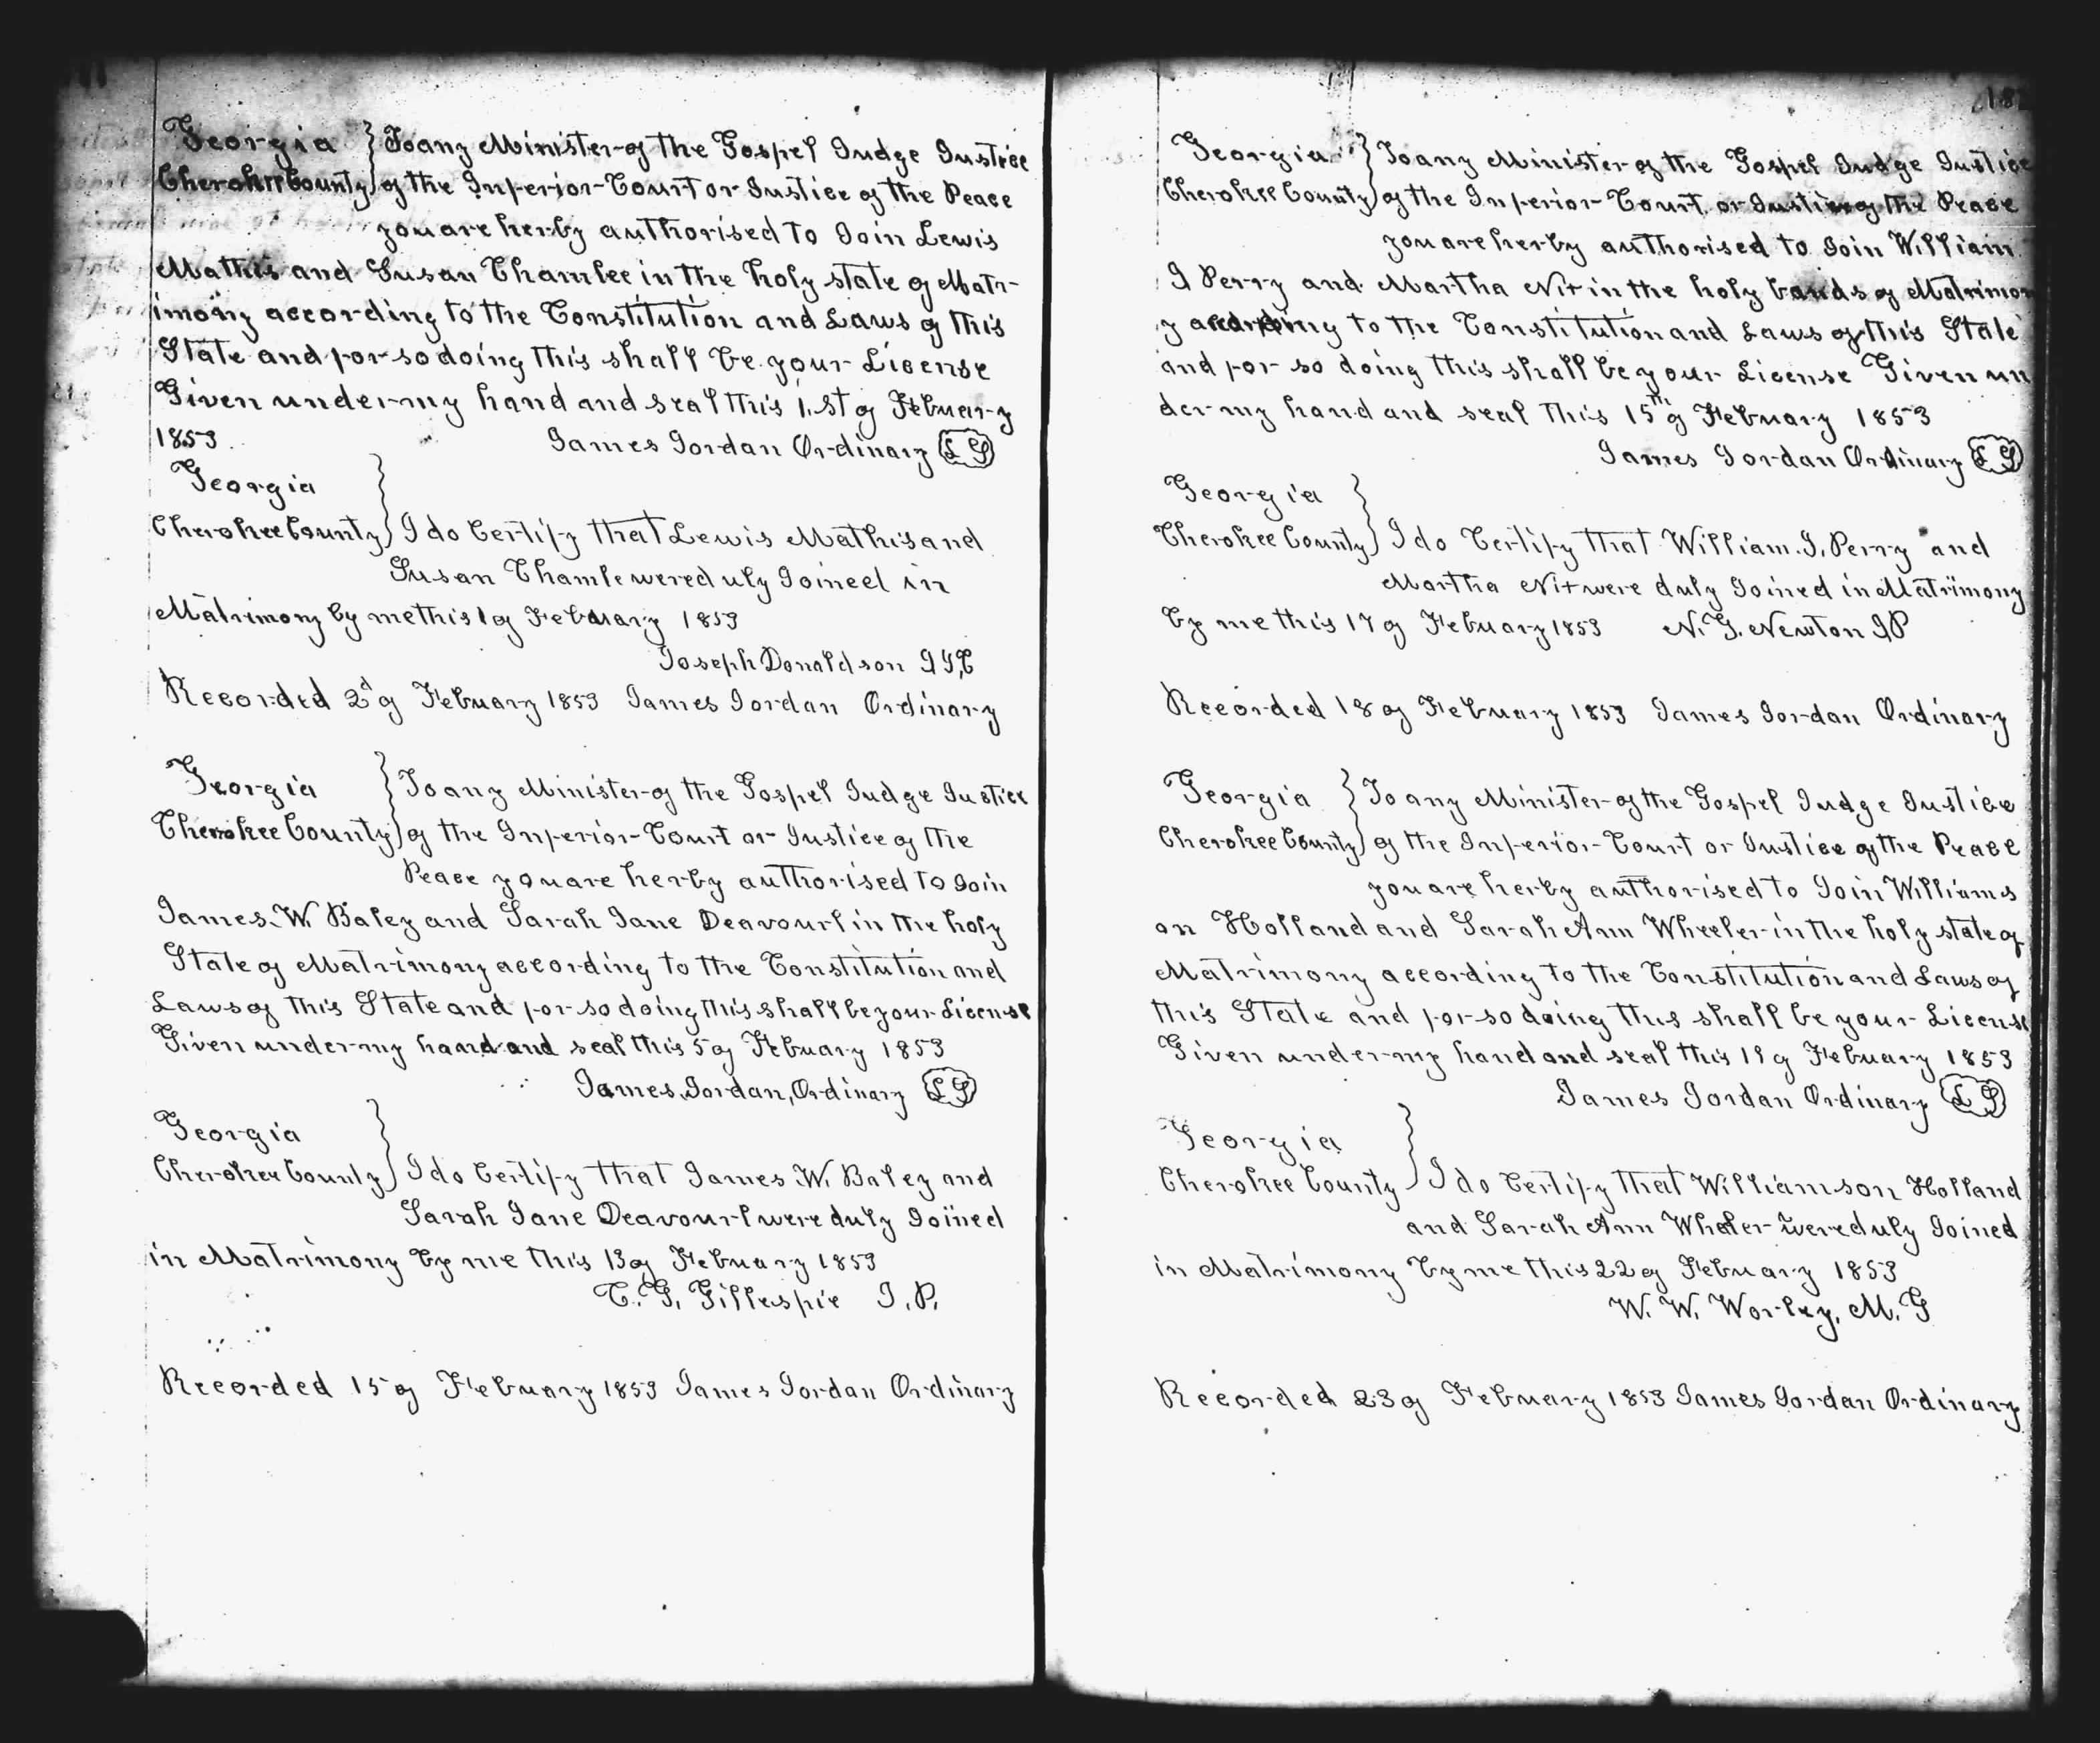 Georgia } To any Minister of the Gospel Judge Justice
Cherokee County } of the Inferior Court or Justice of the Peace
you are herby authorised to Join Lewis
Mathis and Susan Chamlee in the holy state of Matr-
imony according to the Constitution and Laws of this
State and for so doing this shall be your License
Given under my hand and seal this 1.st of Febuary
1853 James Jordan Ordinary LS
Georgia }
Cherokee County } I do Certify that Lewis Mathis and
Susan Chamle were duly Joined in
Matrimony by me this 1 of Febuary 1853
Joseph Donaldson J I,C
Recorded 2d of Febuary 1853 James Jordan Ordinary
Georgia } To any Minister of the Gospel Judge Justice
Cherokee County } of the Inferior Court or Justice of the
Peace you are herby authorised to Join
James. W. Baley and Sarah Jane Deavourl in the holy
State of Matrimony according to the Constitution and
Laws of this State and for so doing this shall be your License
Given under my hand and seal this 5 of Febuary 1853
James, Jordan, Ordinary LS
Georgia }
Cherokee County } I do Certify that James W. Baley and
Sarah Jane Deavourl were duly Joined
in Matrimony by me this 13 of Febuary 1853
C. G. Gillespie J. P.
Recorded 15 of Febuary 1853 James Jordan Ordinary
Georgia } To any Minister of the Gospel Judge Justice
Cherokee County } of the Inferior Court or Justice of the Peace
you are herby authorised to Join William
J Perry and Martha Nix in the holy bands of Matrimon
y according to the Constitution and Laws of this State
and for so doing this shall be your License Given un
der my hand and seal this 15th of Febuary 1853
James Jordan Ordinary LS
Georgia }
Cherokee County } I do Certify that William. J. Perry and
Martha Nix were duly Joined in Matrimony
by me this 17 of Febuary 1853 N. G. Newton JP
Recorded 18 of Febuary 1853 James Jordan Ordinary
Georgia } To any Minister of the Gospel Judge Justice
Cherokee County } of the Inferior Court or Justice of the Peace
you are herby authorised to Join Williams
on Holland and Sarah Ann Wheeler in the holy state of
Matrimony according to the Constitution and Laws of
this State and for so doing this shall be your License
Given under my hand and seal this 19 of Febuary 1853
James Jordan Ordinary LS
Georgia }
Cherokee County } I do Certify that Williamson Holland
and Sarah Ann Wheler were duly Joined
in Matrimony by me this 22 of Febuary 1853
W. W. Worley, M. G
Recorded 23 of Febuary 1853 James Jordan Ordinary